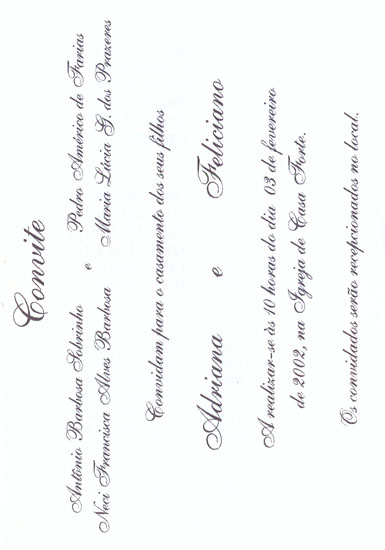 Convite
Antônio Barbosa Sobrinho e Pedro Américo de Farias
Neci Francisca Alves Barbosa Maria Lúcia G. dos Prazeres
Convidam para o casamento dos seus filhos
Adriana e Feliciano
A realizar-se às 10 horas do dia 03 de fevereiro
de 2002, na Igreja de Casa Forte.
Os convidados serão recepcionados no local.